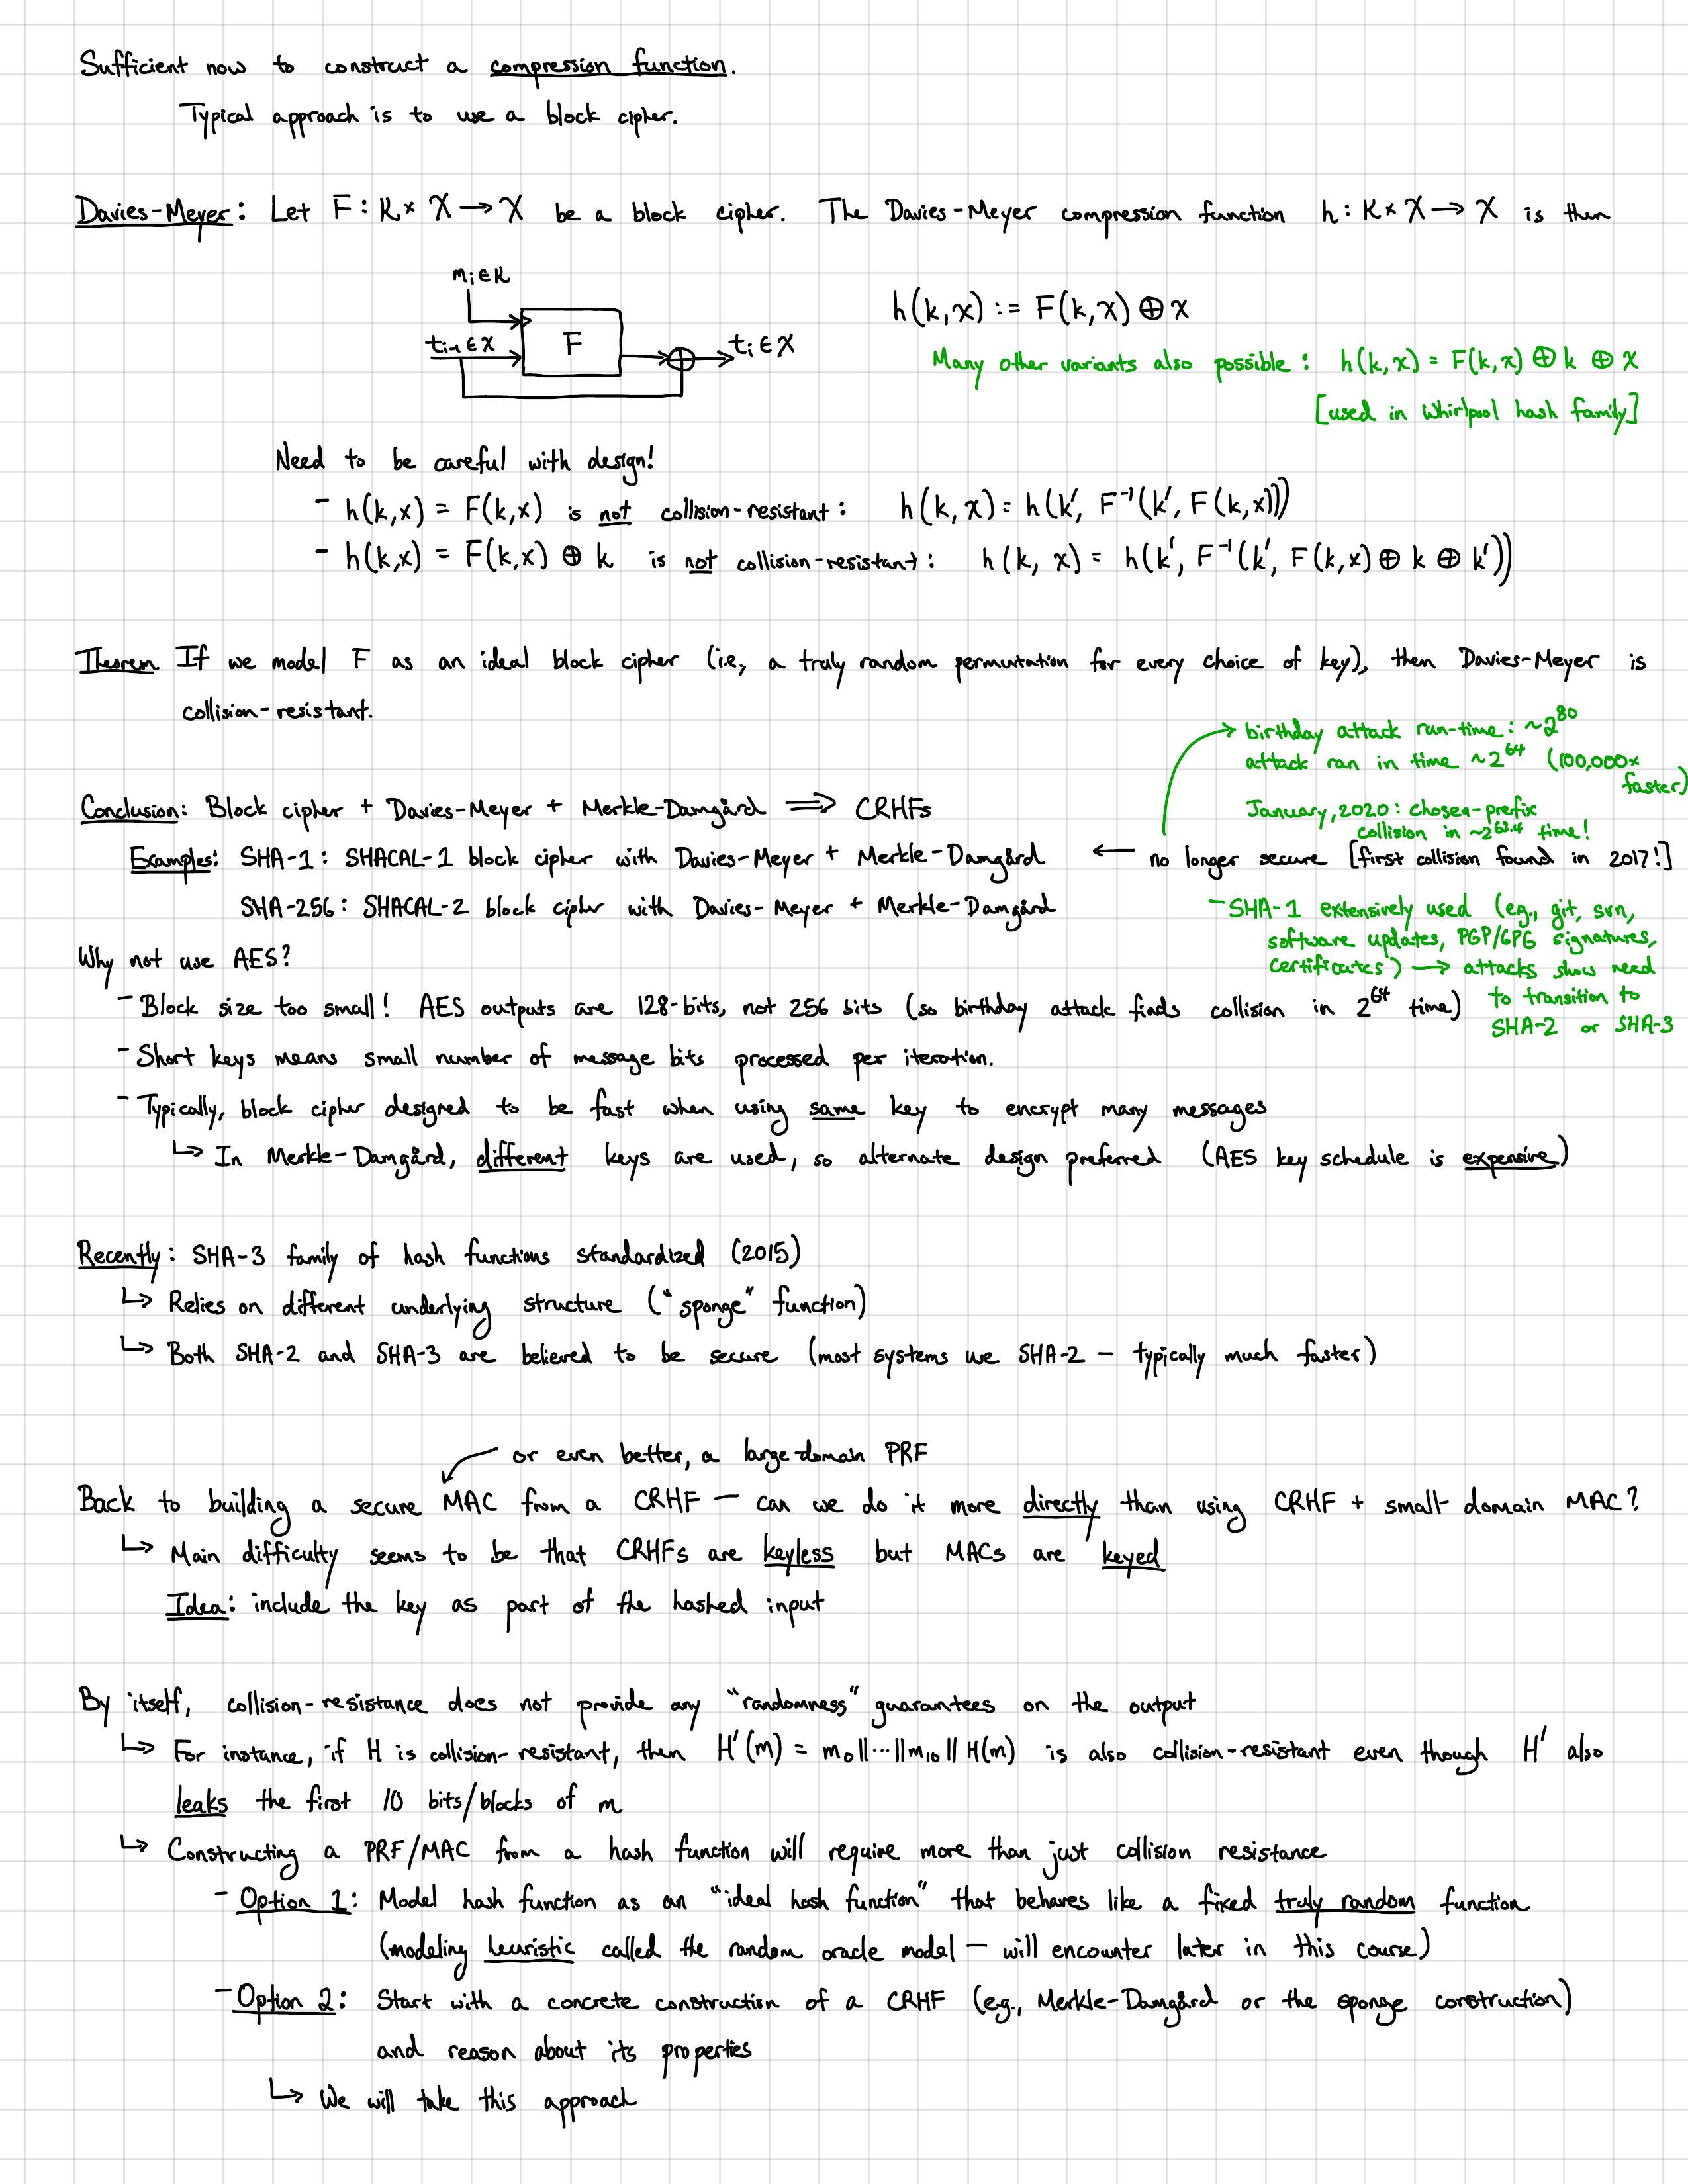 Sufficient now to construct a compression function.
Typical approach is to use a block cipher.
Davies-Meyer: Let F : K × X → X be a block cipher. The Davies-Meyer compression function h : K × X → X is then
mᵢ ∈ K
tᵢ₋₁ ∈ X
F
⊕
tᵢ ∈ X
h(k,x) := F(k,x) ⊕ x
Many other variants also possible : h(k,x) = F(k,x) ⊕ k ⊕ x
[used in Whirlpool hash family]
Need to be careful with design!
- h(k,x) = F(k,x) is not collision-resistant : h(k,x) = h(k', F⁻¹(k', F(k,x)))
- h(k,x) = F(k,x) ⊕ k is not collision-resistant : h(k, x) = h(k', F⁻¹(k', F(k,x) ⊕ k ⊕ k'))
Theorem. If we model F as an ideal block cipher (i.e., a truly random permutation for every choice of key), then Davies-Meyer is
collision-resistant.
birthday attack run-time : ~2⁸⁰
attack ran in time ~2⁶⁴ (100,000×
faster)
January, 2020 : chosen-prefix
collision in ~2⁶³·⁴ time!
Conclusion: Block cipher + Davies-Meyer + Merkle-Damgård ⟹ CRHFs
Examples: SHA-1 : SHACAL-1 block cipher with Davies-Meyer + Merkle-Damgård ← no longer secure [first collision found in 2017!]
SHA-256 : SHACAL-2 block cipher with Davies-Meyer + Merkle-Damgård
- SHA-1 extensively used (e.g., git, svn,
software updates, PGP/GPG signatures,
certificates) → attacks show need
to transition to
SHA-2 or SHA-3
Why not use AES?
- Block size too small! AES outputs are 128-bits, not 256 bits (so birthday attack finds collision in 2⁶⁴ time)
- Short keys means small number of message bits processed per iteration.
- Typically, block cipher designed to be fast when using same key to encrypt many messages
↳ In Merkle-Damgård, different keys are used, so alternate design preferred (AES key schedule is expensive)
Recently : SHA-3 family of hash functions standardized (2015)
↳ Relies on different underlying structure ("sponge" function)
↳ Both SHA-2 and SHA-3 are believed to be secure (most systems use SHA-2 - typically much faster)
or even better, a large-domain PRF
Back to building a secure MAC from a CRHF - can we do it more directly than using CRHF + small-domain MAC?
↳ Main difficulty seems to be that CRHFs are keyless but MACs are keyed
Idea: include the key as part of the hashed input
By itself, collision-resistance does not provide any "randomness" guarantees on the output
↳ For instance, if H is collision-resistant, then H'(m) = m₀||···||m₁₀||H(m) is also collision-resistant even though H' also
leaks the first 10 bits/blocks of m
↳ Constructing a PRF/MAC from a hash function will require more than just collision resistance
- Option 1: Model hash function as an "ideal hash function" that behaves like a fixed truly random function
(modeling heuristic called the random oracle model - will encounter later in this course)
- Option 2: Start with a concrete construction of a CRHF (e.g., Merkle-Damgård or the sponge construction)
and reason about its properties
↳ We will take this approach